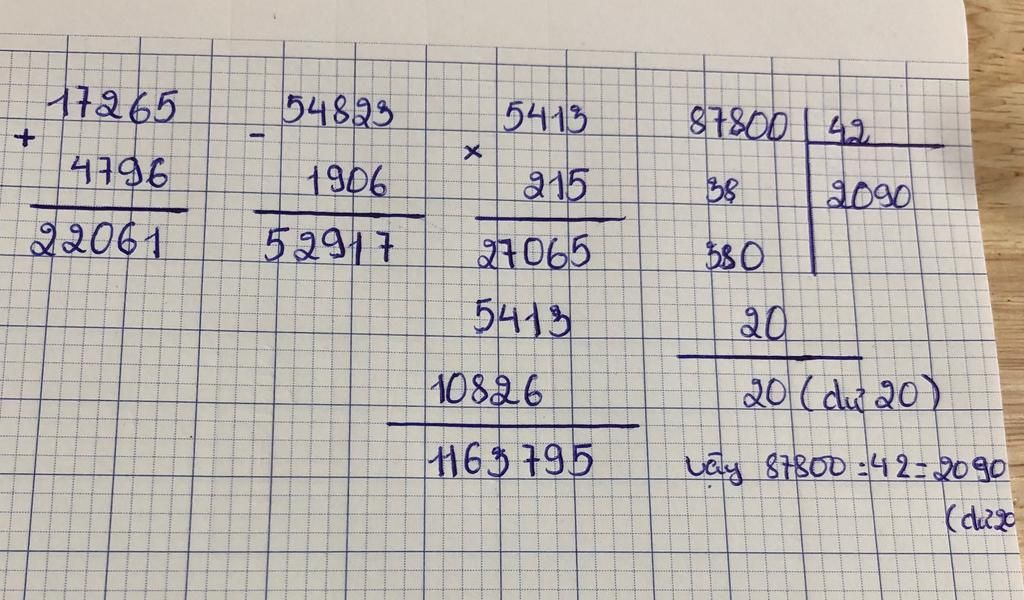 17265
+
4796
22061
54823
-
1906
52917
5413
×
215
27065
5413
10826
1163795
87800 42
38 2090
380
20
20 (dư 20)
vậy 87800 : 42 = 2090
(dư 20